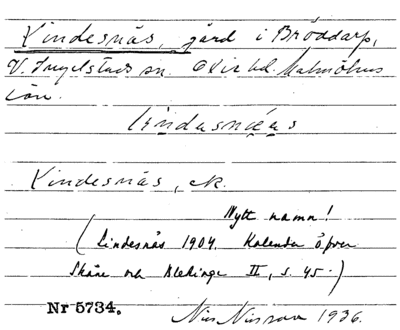 Lindesnäs, gård i Bröddarp,
V. Ingelstads sn. Oxie hd. Malmöhus
län.
lindasnä̱ as
Lindesnäs, ek.
Nytt namn!
(Lindesnäs 1904. Kalender öfver
Skåne och Blekinge II, s. 45.)
Nr 5734.
Nils Nilsson 1936.